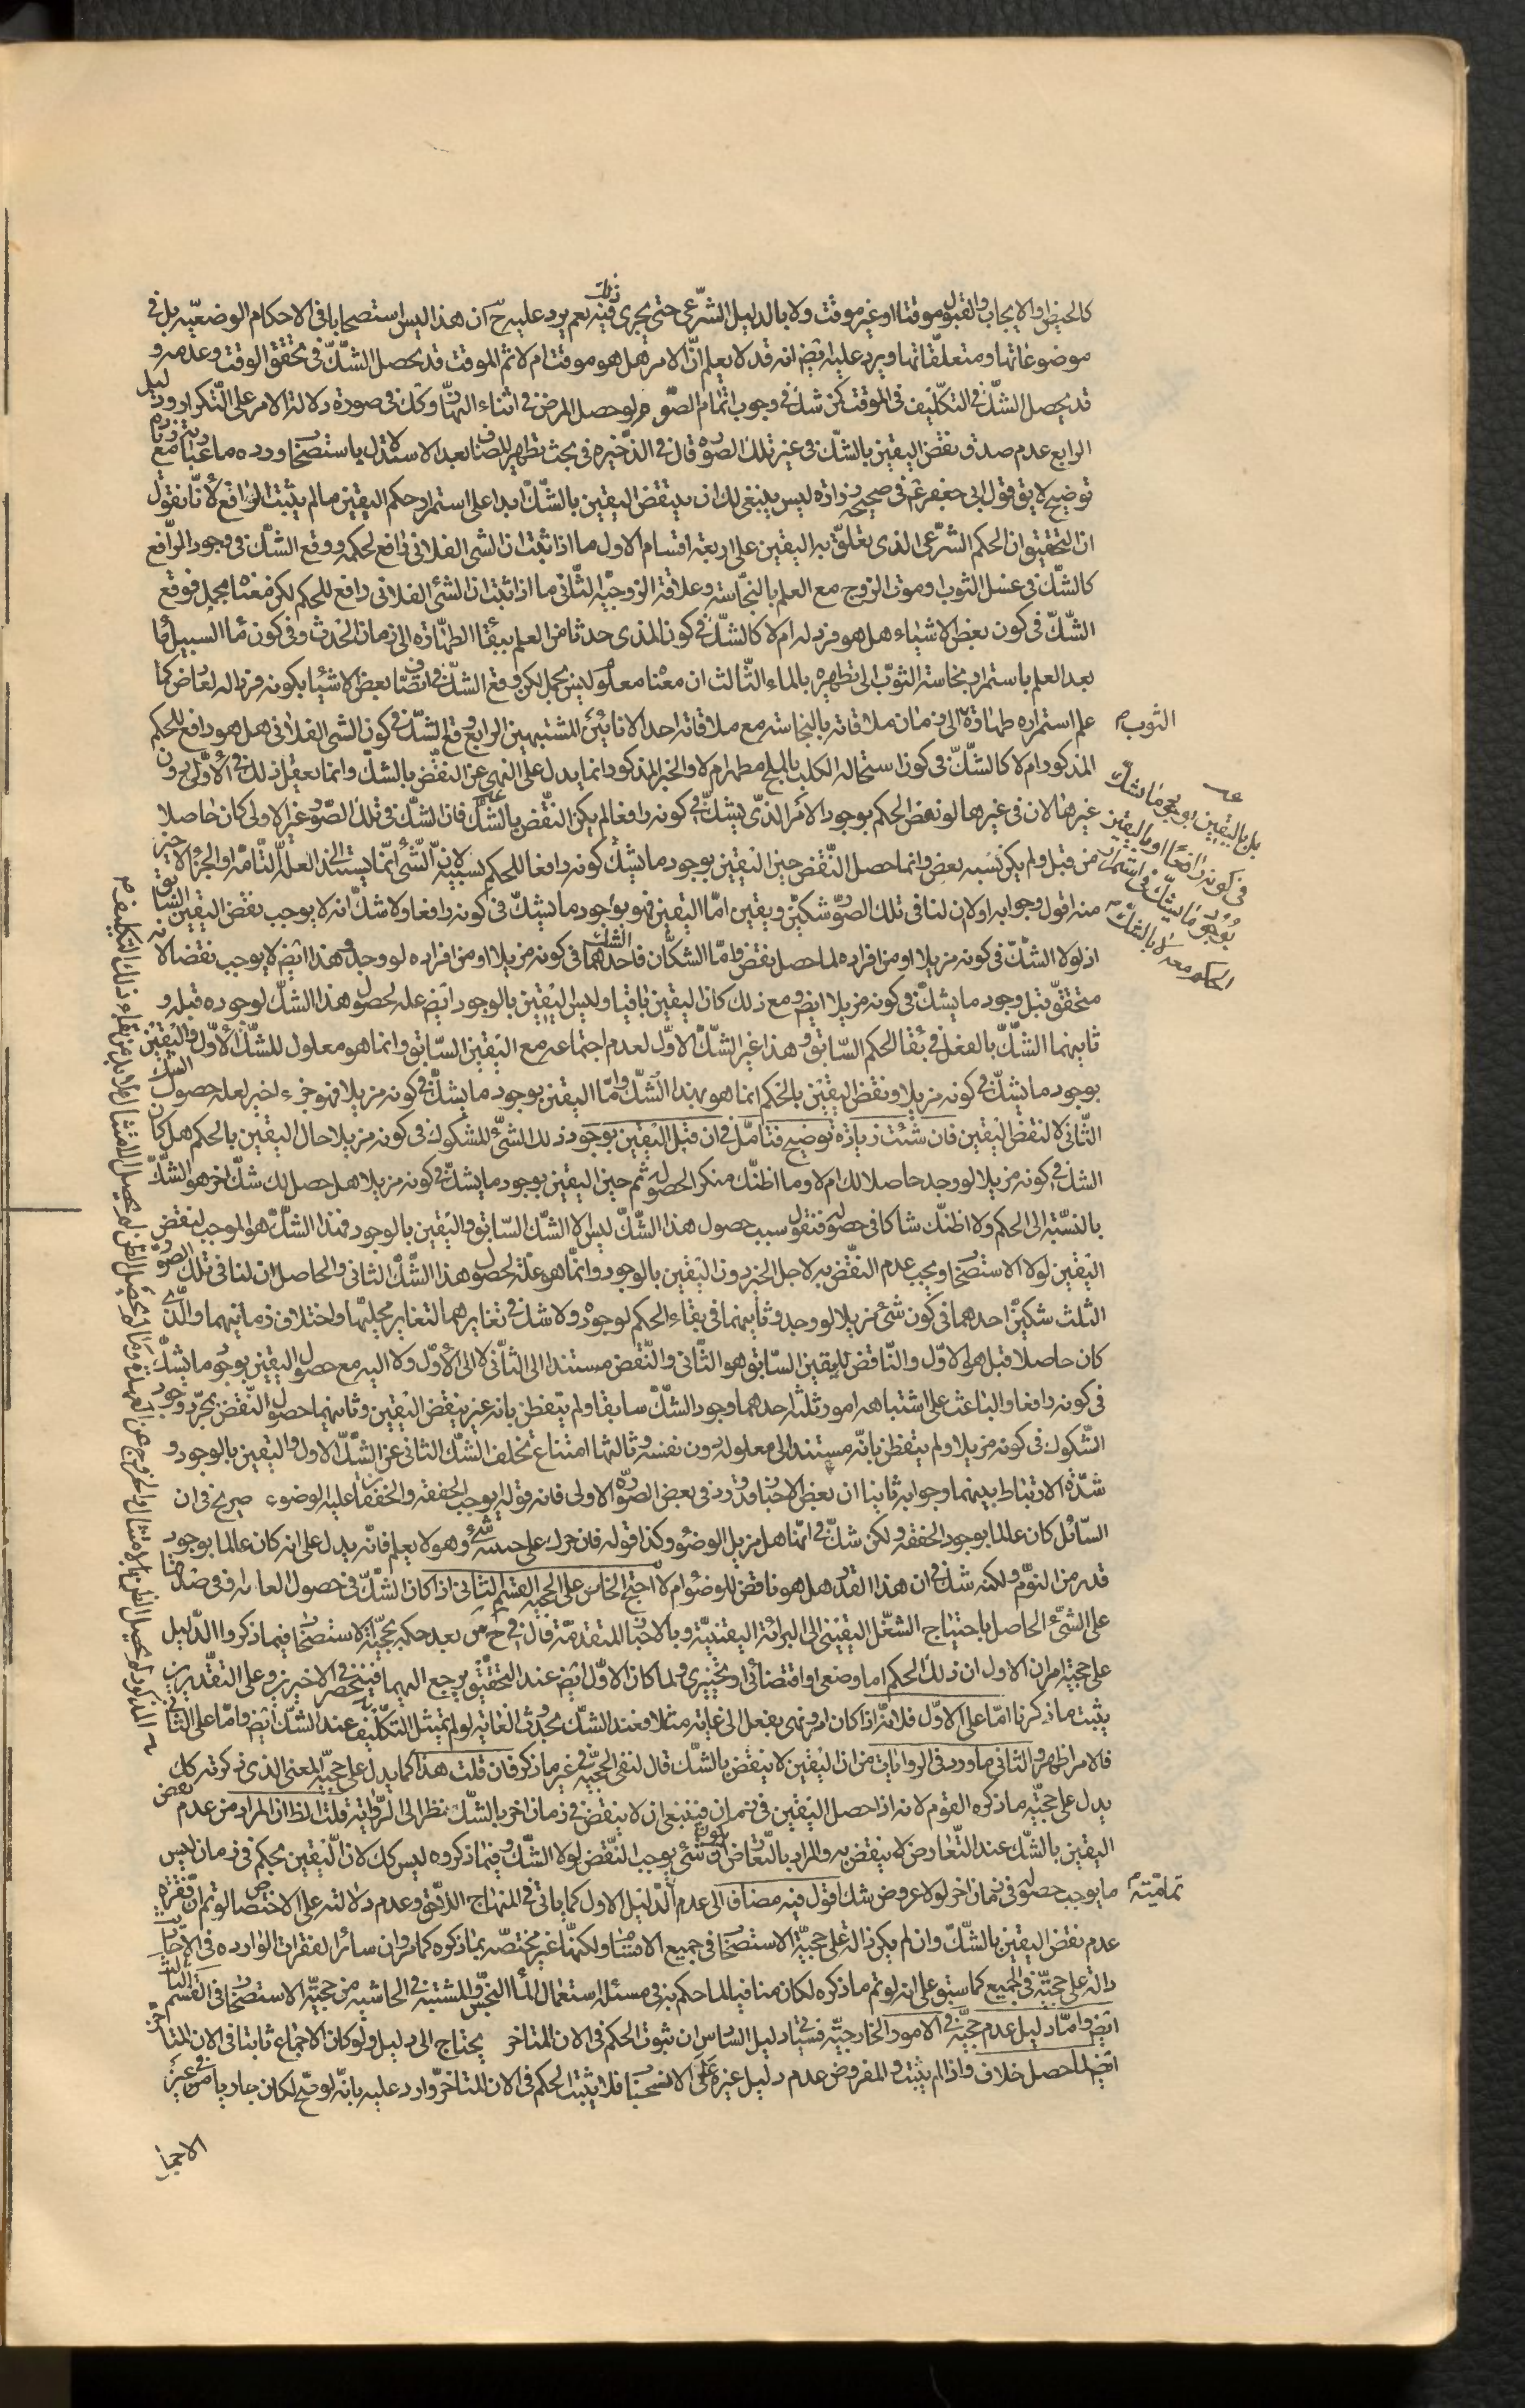 كالحيض والايجاب والقبول موقتا او غير موقت ولا بالدليل الشرعى حتى يجرى فيه ذلك نعم يرد عليه ح ان هذا ليس استصحابا فى الاحكام الوضعيه بل فى
موضوعاتها ومتعلقاتها ويرد عليه ايض انه قد لا يعلم ان الامر هل هو موقت ام لا ثم الموقت قد يحصل الشك فى تحقق الوقت وعدمه و
قد يحصل الشك فى التكليف فى الموقت كمن شك فى وجوب اتمام الصوم لو حصل المرض فى اثناء النهار وكك فى صورة دلالة الامر على التكرار ودليل
الرابع عدم صدق نقض اليقين بالشك فى غير تلك الصوره قال فى الذخيره فى بحث تطهير المضاف بعد الاستدلال باستصحاب ورده ما عبارته مع
توضيح لا يق قول ابى جعفر ع فى صحيحة زراره ليس ينبغى لك ان ينتقض اليقين بالشك ابدا على استمرار حكم اليقين ما لم يثبت الرافع لانا نقول
ان التحقيق ان الحكم الشرعى الذى تعلق به اليقين على اربعة اقسام الاول ما اذا ثبت ان الشئ الفلانى رافع لحكمه ووقع الشك فى وجود الرافع
كالشك فى غسل الثوب وموت الزوج مع العلم بالنجاسة وعلاقة الزوجيه الثانى ما اذا ثبت ان الشئ الفلانى رافع للحكم لكن معناه مجمل فوقع
الشك فى كون بعض الاشياء هل هو فرد له ام لا كالشك فى كون المذى حدثا مع العلم ببقاء الطهارة الى زمان الحدث وفى كون ماء السيل ماء
بعد العلم باستمرار نجاسة الثوب الى تطهيره بالماء الثالث ان معناه معلوم ليس بمجمل لكن وقع الشك فى اتصاف بعض الاشياء بكونه فردا له لعارض كما
علم استمراره طهارة الى زمان ملاقاته بالنجاسة مع ملاقاته احد الانائين المشتبهين الرابع وقع الشك فى كون الشئ الفلانى هل هو رافع للحكم
الثوب م
المذكور ام لا كالشك فى كون استحاله الكلب بالملح مطهرا ام لا والخبر المذكور انما يدل على النهى عن النقض بالشك وانما يعقل ذلك فى الاول دون
غيرها لان فى غيرها لو نقض الحكم بوجود الامر الذى يشك فى كونه رافعا لم يكن النقض بالشك فان الشك فى تلك الصور غير الاولى كان حاصلا
من قبل ولم يكن بسببه نقض وانما حصل النقض حين اليقين بوجود ما يشك كونه رافعا للحكم بسببه لان الشئ انما يستند الى العلة التامه او الجزء الاخير
بل باليقين بوجود ما يشك
فى كونه رافعا او باليقين
بوجود ما يشك فى استمرار
الحكم معه لا بالشك
منه اقول وجوابه اولا ان لنا فى تلك الصور شكين ويقين اما اليقين فهو بوجود ما يشك فى كونه رافعا ولا شك انه لا يوجب نقض اليقين السابق
اذ لولا الشك فى كونه مزيلا او من افراده لما حصل نقض واما الشكان فاحدهما الشك فى كونه مزيلا او من افراده لو وجد وهذا ايض لا يوجب نقضا لانه
متحقق قبل وجود ما يشك فى كونه مزيلا ايض ومع ذلك كان اليقين باقيا وليس اليقين بالوجود ايض علة لحصول هذا الشك لوجوده قبله و
ثانيهما الشك بالفعل فى بقاء الحكم السابق وهذا غير الشك الاول لعدم اجتماعه مع اليقين السابق وانما هو معلول للشك الاول واليقين
بوجود ما يشك فى كونه مزيلا ونقض اليقين بالحكم انما هو بهذا الشك واما اليقين بوجود ما يشك فى كونه مزيلا فهو جزء اخير لعلة حصول الشك
الثانى لا لنقض اليقين فان شئت زيادة توضيح فتامل فى ان قبل اليقين بوجود ذلك الشئ المشكوك فى كونه مزيلا حال اليقين بالحكم هل كان
الشك فى كونه مزيلا لو وجد حاصلا لك ام لا وما اظنك منكر الحصوله ثم حين اليقين بوجود ما يشك فى كونه مزيلا هل حصل لك شك اخر هو الشك
بالنسبة الى الحكم ولا اظنك شاكا فى حصوله فنقول سبب حصول هذا الشك ليس الا الشك السابق واليقين بالوجود فهذا الشك هو الموجب لنقض
اليقين لولا الاستصحاب ويجب عدم النقض به لاجل الخبر دون اليقين بالوجود وانما هو علة لحصول هذا الشك الثانى والحاصل ان لنا فى تلك الصور
الثلث شكين احدهما فى كون شئ مزيلا لو وجد وثانيهما فى بقاء الحكم لوجوده ولا شك فى تغايرهما لتغاير محليهما واختلاف زمانيهما والذى
كان حاصلا قبل هو الاول والناقض لليقين السابق هو الثانى والنقض مستندا الى الثانى لا الى الاول ولا اليه مع حصول اليقين بوجود ما يشك
فى كونه رافعا والباعث على اشتباهه امور ثلثة احدهما وجود الشك سابقا ولم يتفطن بانه غير ينقض اليقين وثانيهما حصول النقض بمجرد وجود
الشكوك فى كونه مزيلا ولم يتفطن بانه مستند الى معلوله دون نفسه وثالثها امتناع تخلف الشك الثانى عن الشك الاول واليقين بالوجود و
شدة الارتباط بينهما وجوابه ثانيا ان بعض الاخبار قد ورد فى بعض الصوره الاولى فانه قوله ايوجب الخفقه والخفقتان عليه الوضوء صريح فى ان
السائل كان عالما بوجود الخفقه ولكن شك فى انها هل مزيل الوضوء وكذا قوله فان حرك على جنبه شئ وهو لا يعلم فانه يدل على انه كان عالما بوجود
قدر من النوم ولكنه شك فى ان هذا القدر هل هو ناقض للوضوء ام لا احتج الخامس على الحجيه القسم الثانى اذا كان الشك فى حصول الغاية وفى ضدها
على الشئ الحاصل باحتياج الشغل اليقينى الى البرائة اليقينية وبالاخبار المتقدمة قال فى ح س بعد حكمه بحجية الاستصحاب فيما ذكروا الدليل
على حجيته امران الاول ان ذلك الحكم اما وضعى او اقتضائى او تخييرى ولما كان الاول ايض عند التحقيق يرجع اليهما فينحصر فى الاخيرين وعلى التقديرين
يثبت ما ذكرنا اما على الاول فلانه اذا كان امر ونهى بفعل الى غاية مثلا فعند الشك بحدوث الغاية لو لم يمتثل التكليف عند الشك ايض واما على الثانى
فالامر اظهر والثانى ما ورد فى الروايات من ان اليقين لا ينقض بالشك قال لنفى الحجية فى غير ما ذكر فان قلت هذا كما يدل على حجية المعنى الذى ذكرته كك
يدل على حجية ما ذكره القوم لانه اذا حصل اليقين فى زمان فينبغى ان لا ينقض فى زمان اخر بالشك نظرا الى الرواية قلت الظ ان المراد من عدم نقض
اليقين بالشك عند التعارض لا ينقض به والمراد بالتعارض ان يكون شئ يوجب النقض لولا الشك وفيما ذكروه ليس كك لان اليقين بحكم فى زمان ليس
ما يوجب حصوله فى زمان اخر لولا عروض شك اقول فيه مضافا الى عدم تمامية الدليل الاول كما ياتى فى المنهاج اللاحق وعدم دلالته على الاختصاص لو تم ان فقره
عدم نقض اليقين بالشك وان لم يكن دالة على حجية الاستصحاب فى جميع الاقسام ولكنها غير مختصه بما ذكروه كما مر وان سائر الفقرات الوارده فى الاخبار
دالة على حجيته فى الجميع كما سبق على انه لو تم ما ذكره لكان منافيا لما حكم به فى مسئلة استعمال الماء النجس والمشتبه فى الحاشيه من حجية الاستصحاب فى القسم الثالث
ايض واما دليل عدم حجيته فى الامور الخارجيه فسياتى دليل السادس ان ثبوت الحكم فى الان المتاخر يحتاج الى دليل ولو كان الاجماع ثابتا فى الان المتاخر
ايض لما حصل خلاف واذا لم يثبت والمفروض عدم دليل غيره على الاستصحاب فلا يثبت الحكم فى الان المتاخر واورد عليه بانه لو صح لكان جاريا فى غير
الاجماع